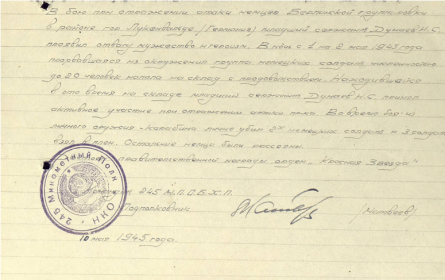 В бою при отражении атаки немцев Берлинской группировки
в районе гор. Лукенвальде /Германия/ младший сержант Дунаев Н.С.
проявил отвагу мужество и героизм. В ночь с 1 на 2 мая 1945 года
прорвавшаяся из окружения группа немецких солдат численностью
до 20 человек напала на склад с продовольствием. Находившийся
в это время на складе младший сержант Дунаев Н.С. принял
активное участие при отражении атаки
личного оружия - карабина убил 2х немецких солдат и 3
взял в плен. Остальные немцы были рассеяны.
правительственной награды орден „Красная Звезда"
245 М.П. О.Б.Х.П.
Подполковник /Матвеев/
10 мая 1945 года.
245 Минометный Полк